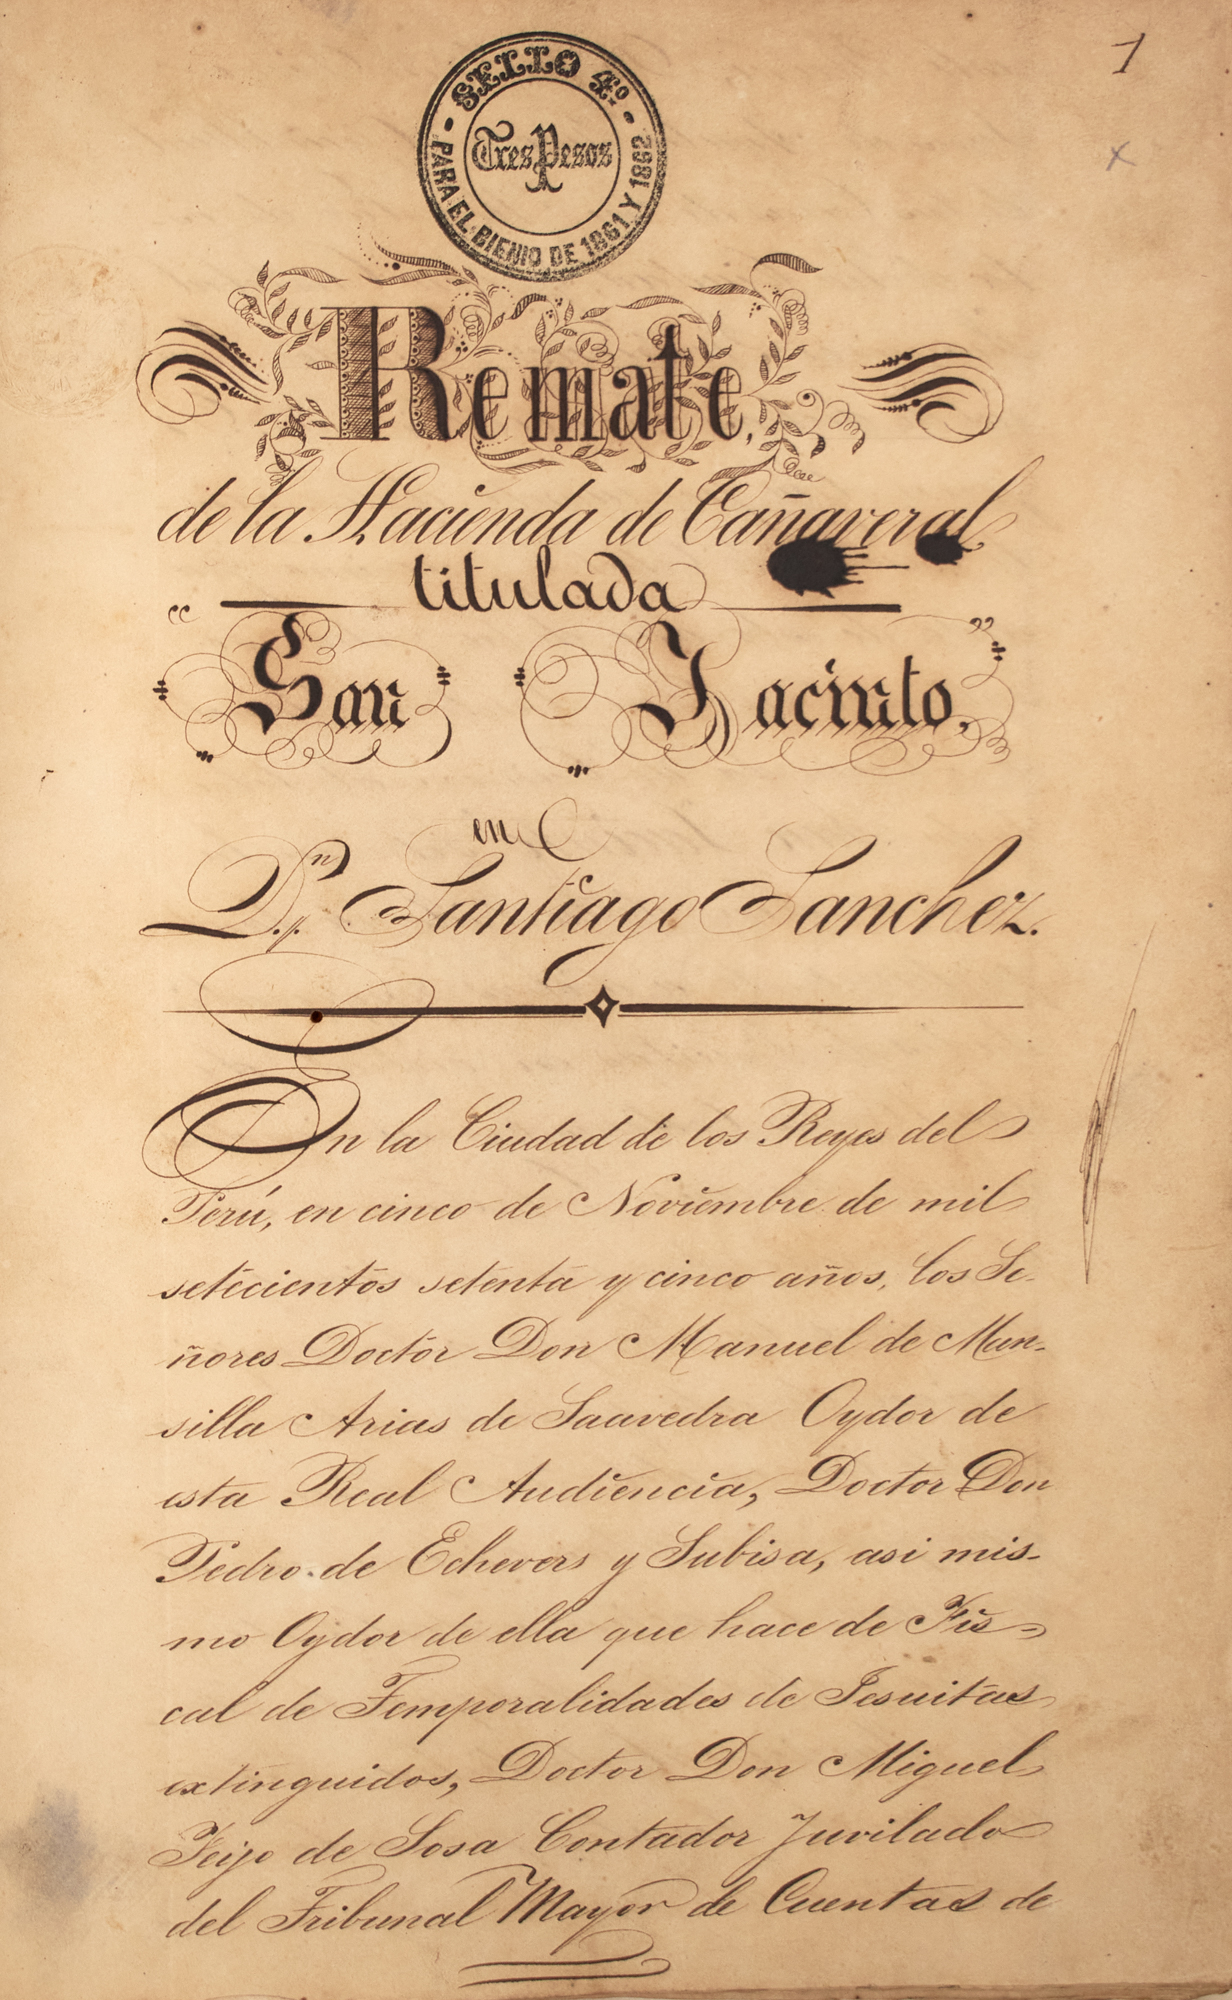 1
x
SELLO 4º
Tres Pesos
PARA EL BIENIO DE 1861 Y 1862
Remate,
de la Hacienda de Cañaveral
titulada
"San Jacinto,"
en
Dn. Santiago Sanchez.
En la Ciudad de los Reyes del
Perú, en cinco de Noviembre de mil
setecientos setenta y cinco años, los Se-
ñores Doctor Don Manuel de Man-
silla Arias de Saavedra Oydor de
esta Real Audiencia, Doctor Don
Pedro de Echevers y Subisa, asi mis-
mo Oydor de ella que hace de Fis-
cal de Temporalidades de Jesuitas
extinguidos, Doctor Don Miguel
Feijo de Sosa Contador Juvilado
del Tribunal Mayor de Cuentas de